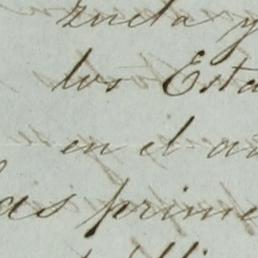 zuela y
los Esta
en el a
las prime